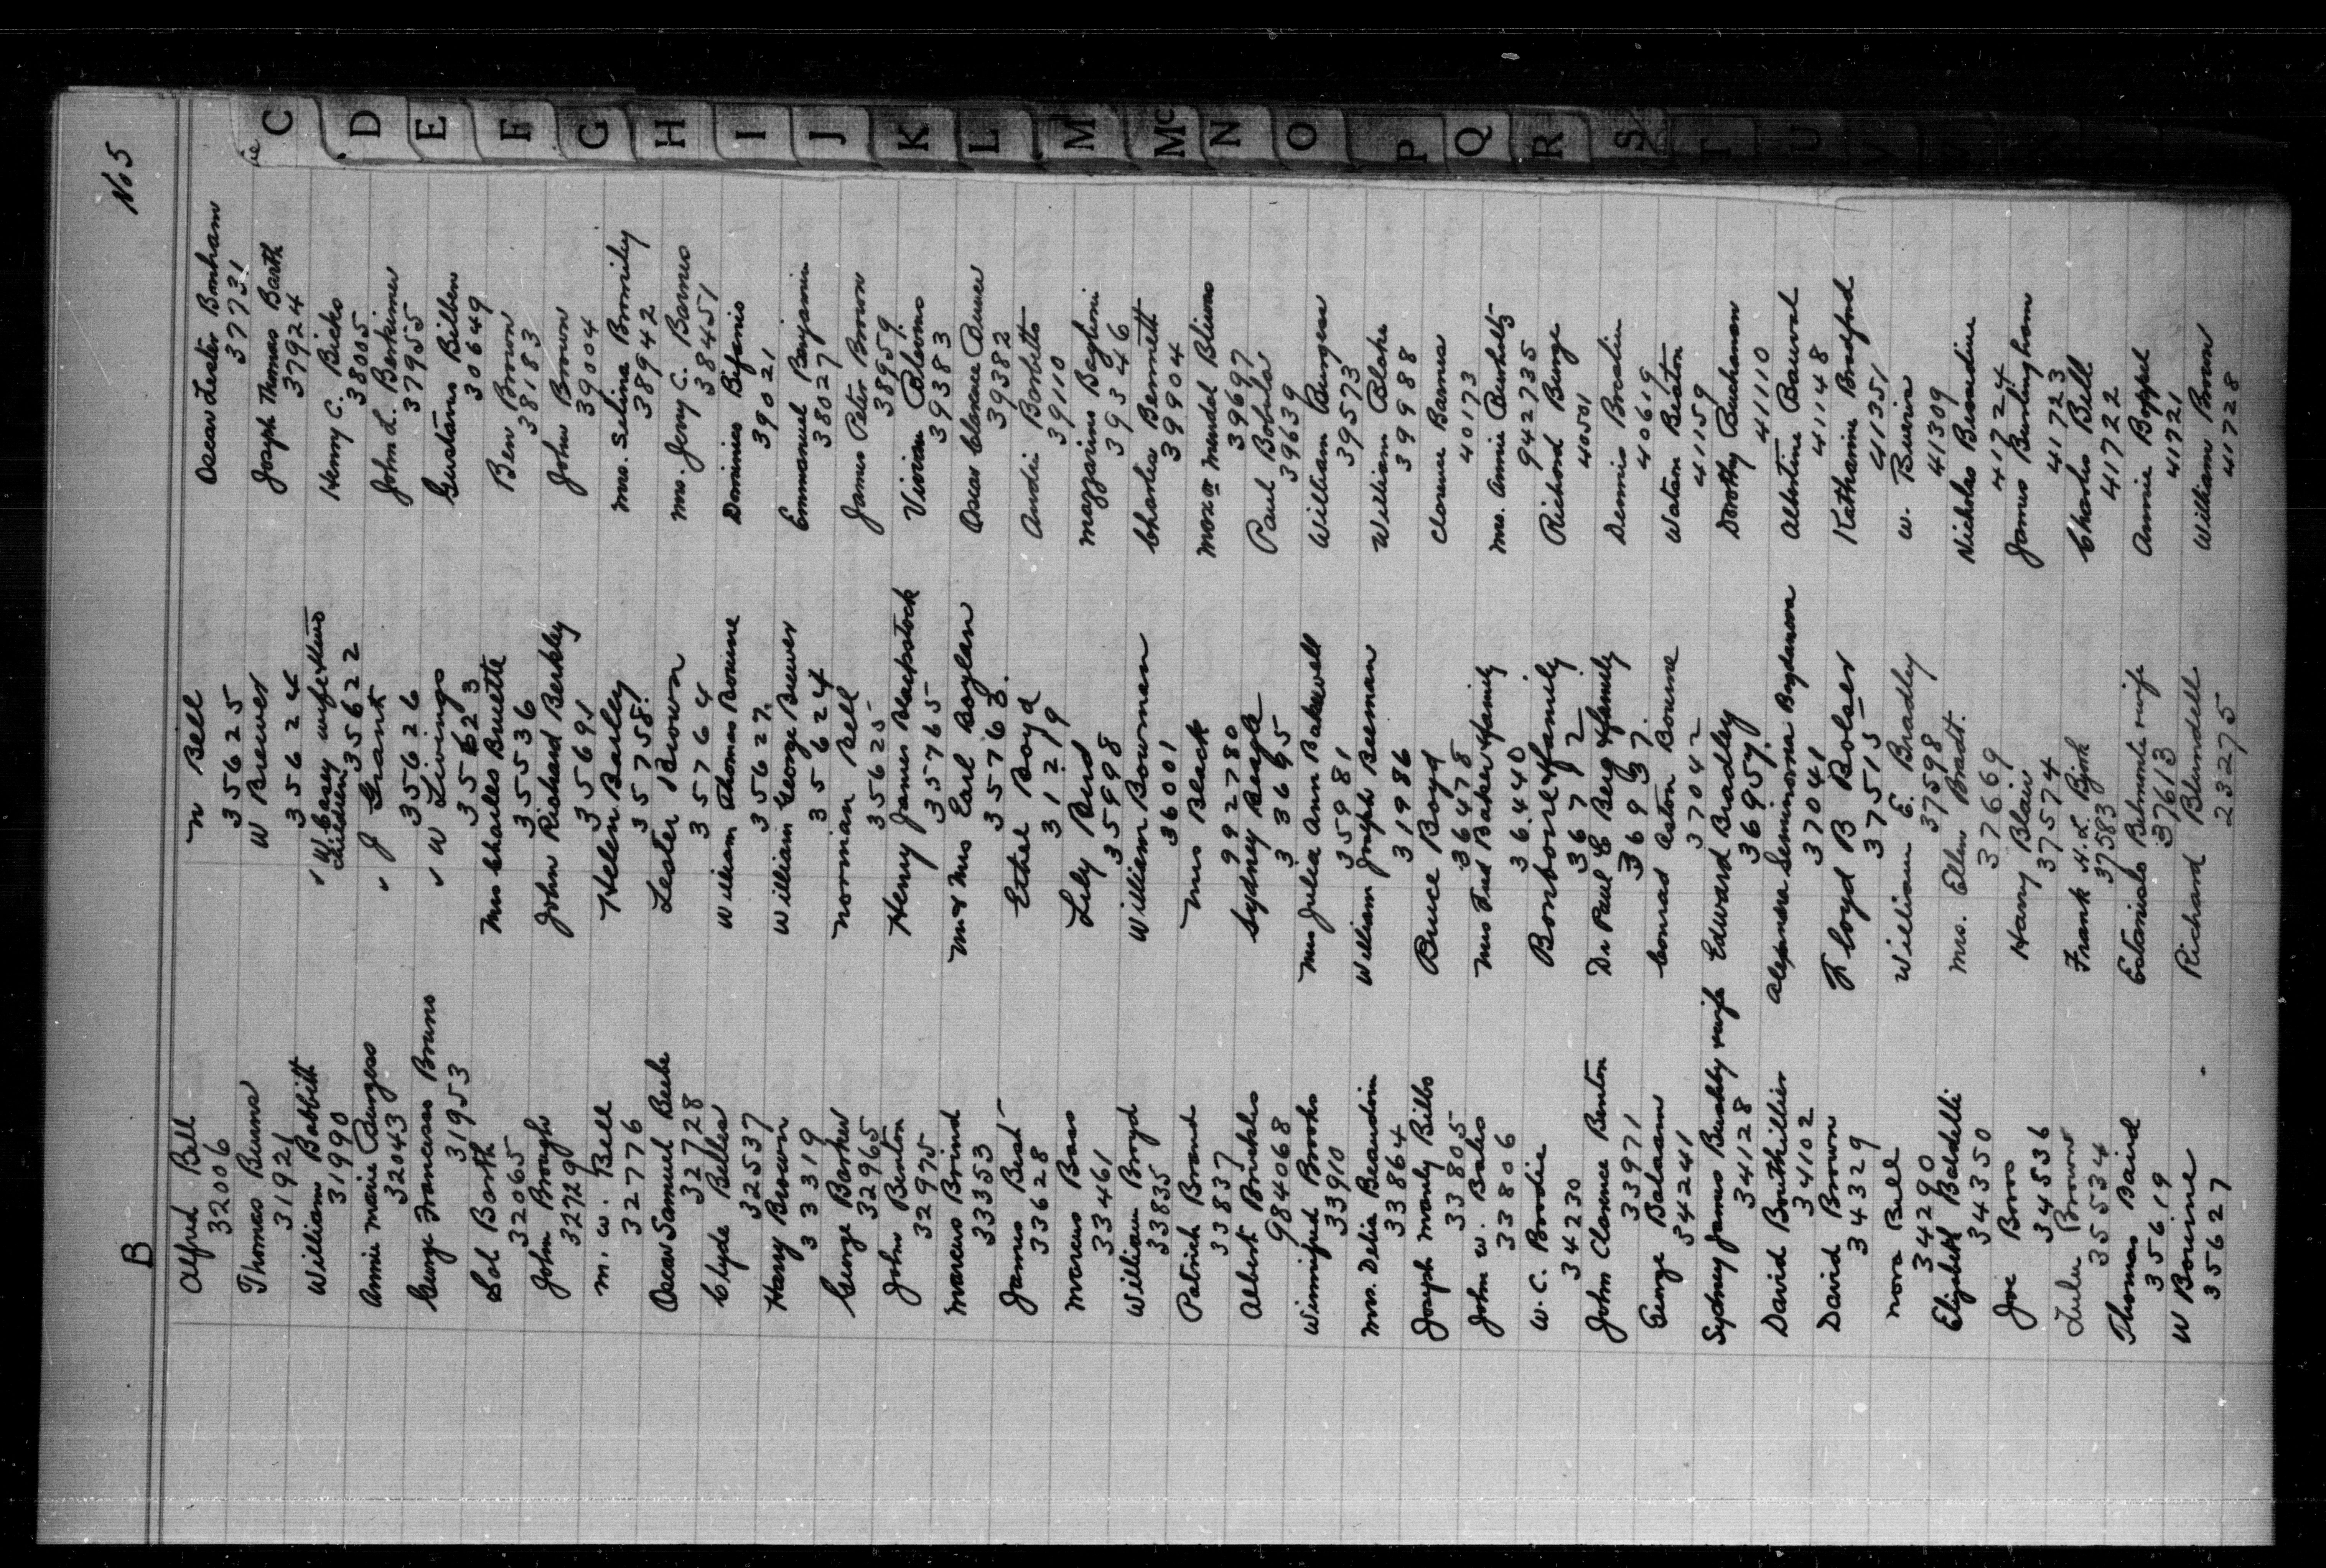 B
No 5
Alfred Bell
32006
Thomas Burns
31921
William Babbitt
31990
Annie Marie Burgess
32043
George Francesas Bruno
31953
Sol Barth
32065
John Brough
32729
M. W. Bell
32776
Oscar Samuel Beebe
32728
Clyde Biller
32537
Harry Brown
33319
George Barker
32965
John Benton
32975
Marcus Brind
33353
James Best
33628
Marcus Bass
33461
William Boyd
33835
Patrick Brand
33837
Albert Brinkles
984068
Winnifred Brooks
33910
Mrs. Delia Beaudin
33864
Joseph Manly Bilbo
33805
John W. Bales
33806
W. C. Boodie
34230
John Clarence Benton
33971
George Balaam
34241
Sydney James Bushby & wife
34128
David Bouthillier
34102
David Brown
34329
Nora Ball
34290
Elizabeth Baldelli
34350
Joe Bros
34536
Lulu Brown
35534
Thomas Baird
35619
W Bourne
35627
N Bell
35625
W Brewer
35624
W Casey wife & two
children 35622
J Grant
35626
W Livings
35623
Mrs Charles Bruette
35536
John Richard Berkley
35691
Helen Basley
35758
Lester Brown
35764
William Thomas Bourne
35627
William George Brewer
35624
Norman Bell
35625
Henry James Blackstock
35765
Mr & Mrs Earl Boylan
35763
Ethel Boyd
31219
Lily Bird
35998
William Bowman
36001
Mrs Black
992780
Sydney Beagle
33695
Mrs Julia Ann Bakewell
35981
William Joseph Beeman
31986
Bruce Boyd
36478
Mrs Fred Baker & family
36440
Bonbonie & family
36772
Dr Paul E Berg & family
36937
Conrad Aston Bourne
37042
Edward Bradley
36959
Alexandra Seminovna Bogdanova
37041
Floyd B Bolser
37515
William E. Bradley
37598
Mrs. Ellen Bradt.
37669
Harry Blair
37574
Frank H. L. Bjork
37583
Estanislo Belmonte & wife
37613
Richard Blundell
23275
Oscar Lester Bonham
37731
Joseph Thomas Barth
37924
Henry C. Bicks
38005
John L. Berkimer
37955
Gustavus Bilben
30649
Ben Brown
38183
John Brown
39004
Mrs. Selina Bromiley
38942
Mrs. Jerry C. Barnes
38451
Dominico Bifanio
39021
Emmanuel Benjamin
38027
James Peter Brown
38959
Vivian Blevins
39383
Oscar Clarence Bunce
39382
Andri Barbetto
39110
Mazzarino Baglioni
39346
Charles Bennett
399904
Max or Mendel Blivas
39697
Paul Bobula
39639
William Burgess
39573
William Blake
39988
Clarence Barnes
40173
Mrs. Annie Burholtz
942735
Richard Burge
40501
Dennis Breslin
40619
Watson Beaton
41159
Dorothy Buchanan
41110
Albertine Bauval
41148
Katharine Bradford
41351
W. Buerin
41309
Nicholas Bessedine
41724
James Burlingham
41723
Charles Bell
41722
Annie Boppel
41721
William Brown
41728
C
D
E
F
G
H
I
J
K
L
M
Mc
N
O
P
Q
R
S
T
U
V
W